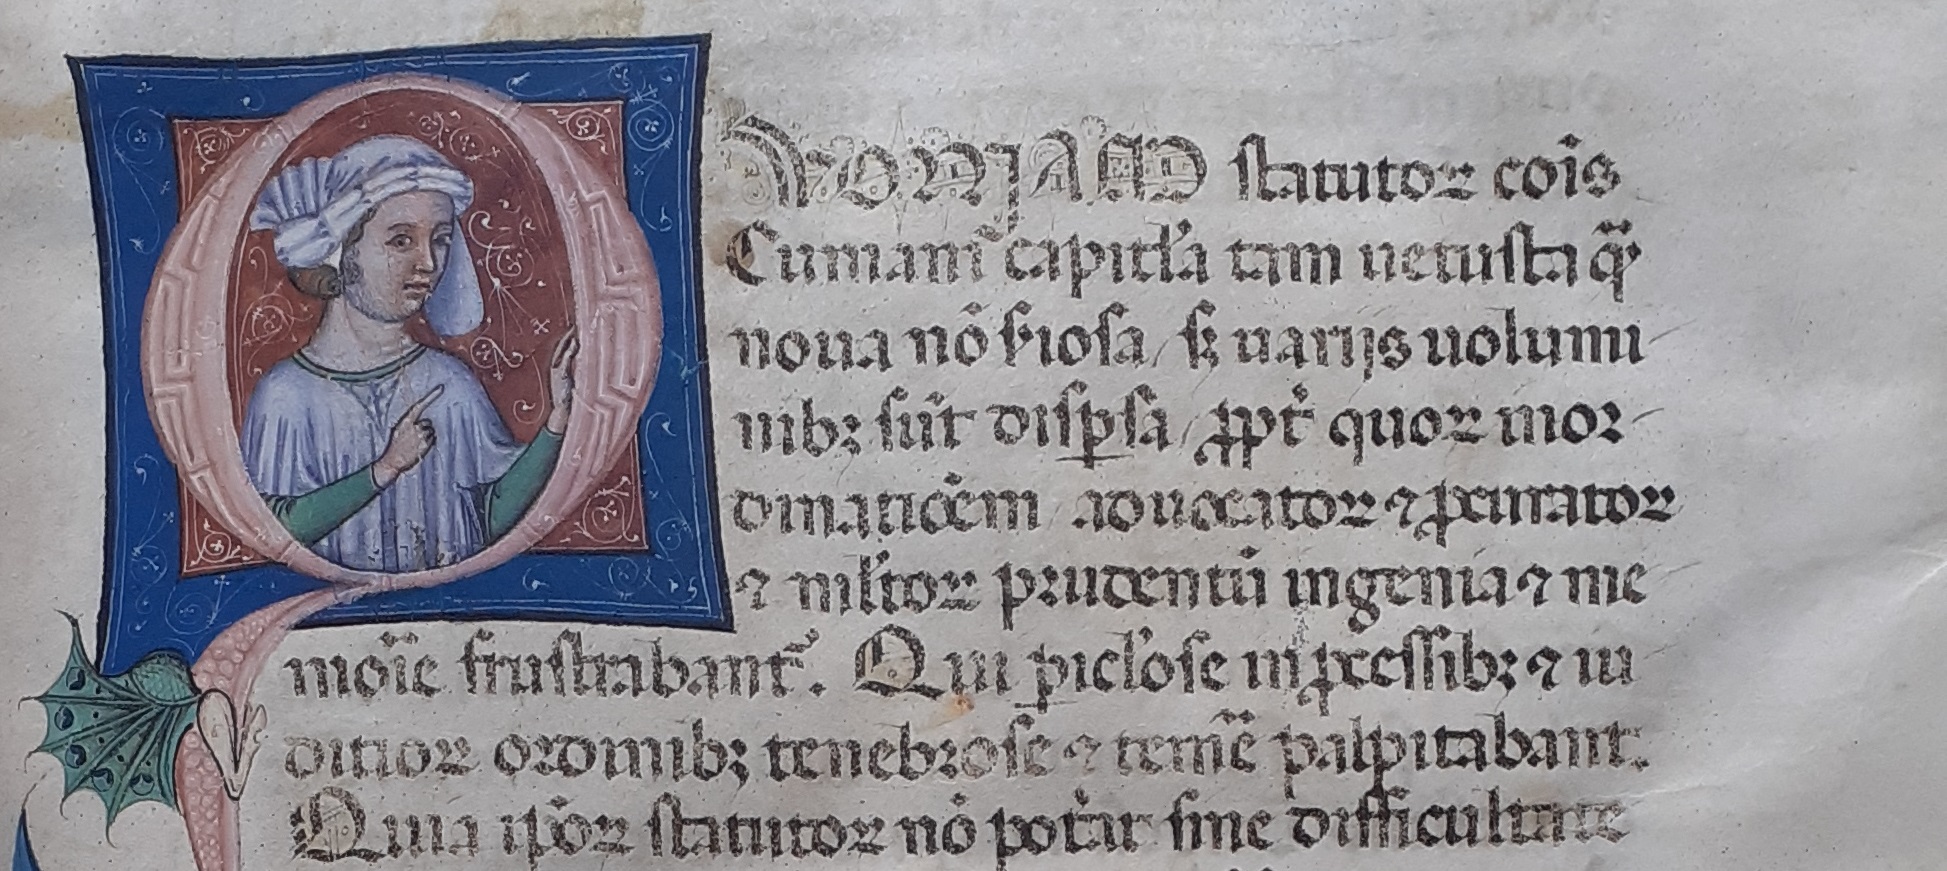 QUONIAM statutoꝝ cōis
Cumani capitl'a tam uetusta qͣ̄
noua nō s̓iosa / sꝫ uarijs uolumi
nibꝫ sūt disꝑsa / ꝓpt̓ quoꝝ inor
dinatiōem aduocatoꝝ ⁊ ꝓcuratoꝝ
⁊ nr̄oꝝ prudentū ingenia ⁊ me
moīe frustrabant᷑. Qui ꝑicl'ose in ꝓcessibꝫ ⁊ iu
ditioꝝ ordinibꝫ tenebrose ⁊ temē palpitabant.
Quia ip̄oꝝ statutoꝝ nō pot̓at sine difficultate